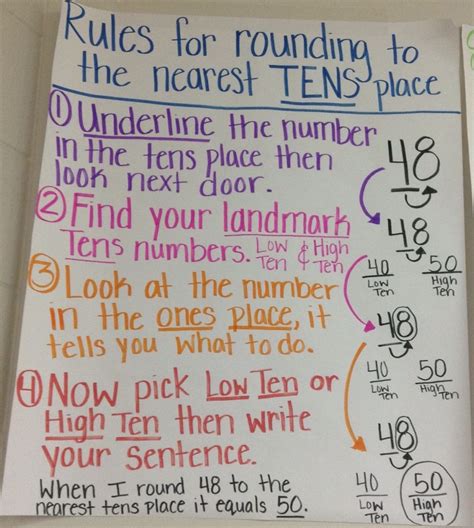 Rules for rounding to
the nearest TENS place
① Underline the number
in the tens place then
look next door.
48
② Find your landmark
Tens numbers. Low Ten & High Ten
48
40 Low Ten
50 High Ten
③ Look at the number
in the ones place, it
tells you what to do.
48
40 Low Ten
50 High Ten
④ Now pick Low Ten or
High Ten then write
your sentence.
48
40 Low Ten
50 High Ten
When I round 48 to the
nearest tens place it equals 50.